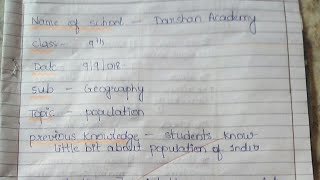 Name of school - Darshan Academy
Class - 9th
Date - 9/9/2018
Sub - Geography
Topic - population
previous knowledge - students know
little bit about population of India